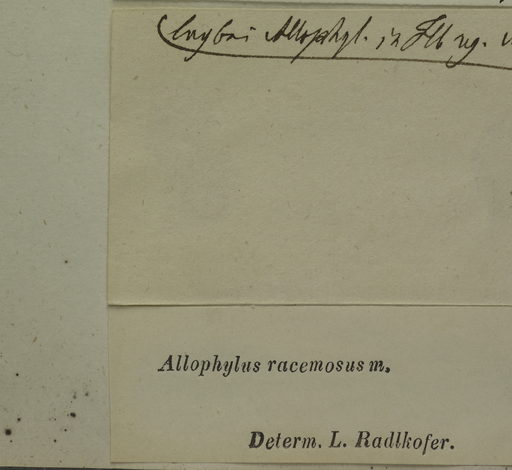 bei Allophyl. in Hb rg.
Allophylus racemosus m.
Determ. L. Radlkofer.